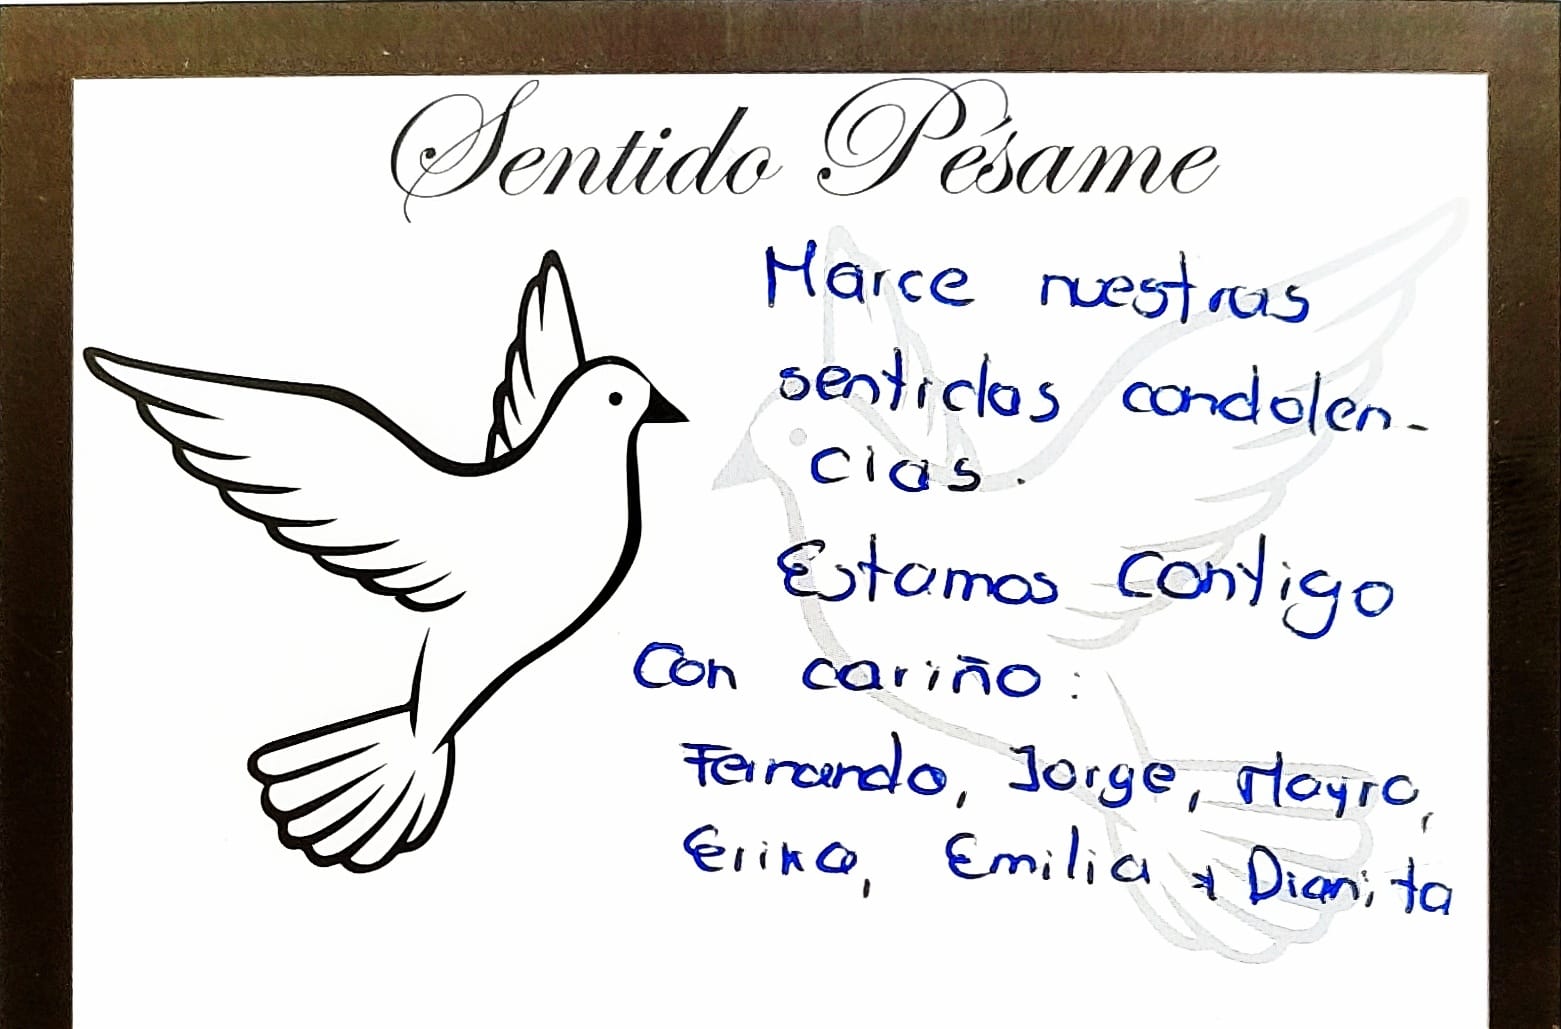 Sentido Pésame
Marce nuestras
sentidas condolen-
cias.
Estamos contigo
Con cariño:
Fernando, Jorge, Mayra,
Erika, Emilia y Dianita